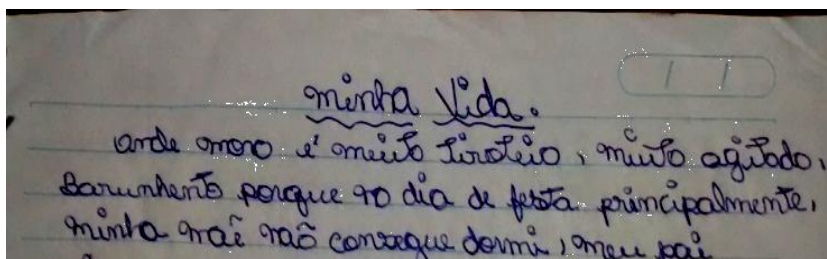 minha Vida.
onde moro é muito tiroteio, muito agitado,
Barunhento porque no dia de festa principalmente,
minha mãe não consegue dormi, meu pai